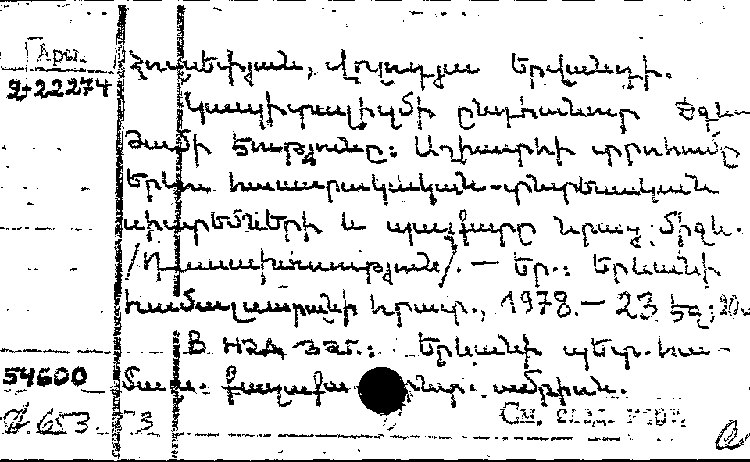 Арм.
2-22274
Հովսեփյան, Երվանդի.
Կապիտալիզմի ընդհանուր ճգնա-
ժամի էությունը: Աշխարհի տրոհումը
երկու հասարակական-տնտեսական
սիստեմների և պայքարը նրանց միջև.
/Դասախոսություն/. — Եր.: Երևանի
համալսարանի հրատ., 1978.— 23 էջ; 20
В надзаг.: Երևանի պետ. հա-
մալս. Քաղաքա տնտ. ամբիոն.
54600
653. 53
См. след. карт.